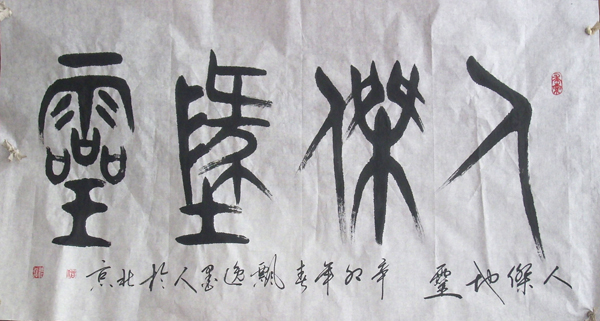 人傑墬靈
人傑地靈 辛卯年春飘逸墨人於北京